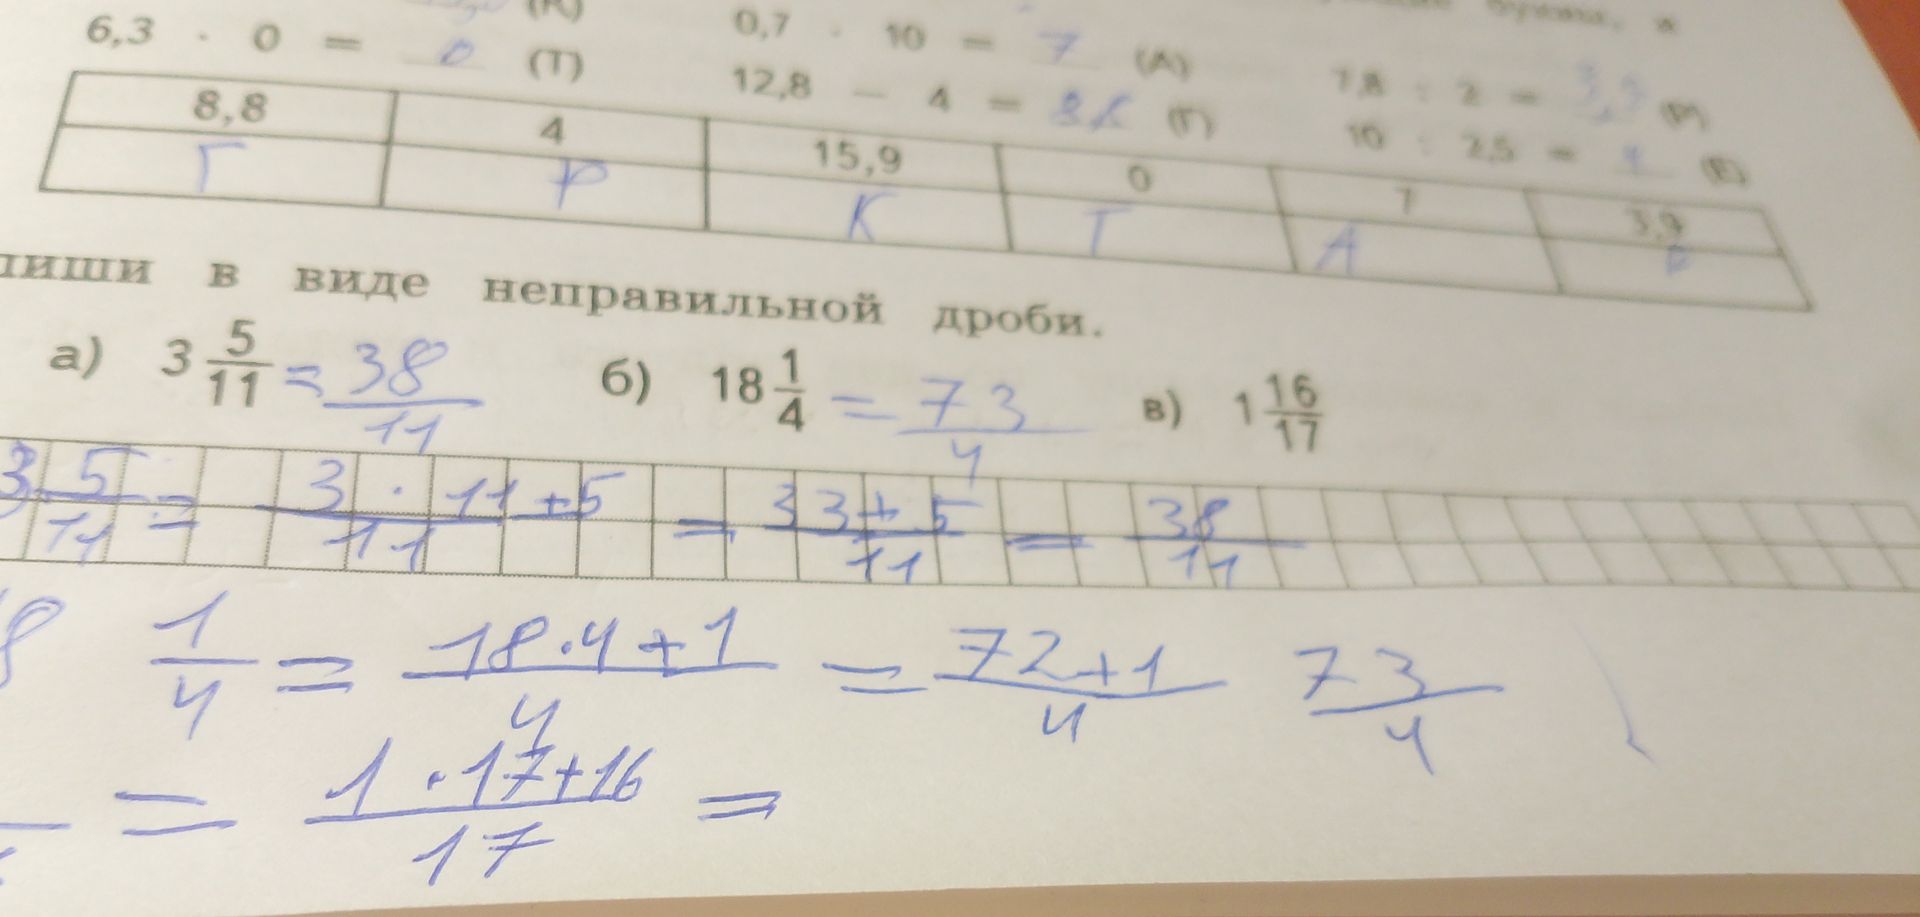 6,3 · 0 = 0 (Т)
0,7 · 10 = 7 (А)
12,8 − 4 = 8,8 (Г)
7,8 : 2 = 3,9
10 : 2,5 = 4
8,8 4 15,9 0 7 3,9
Г Р К Т А
в виде неправильной дроби.
а) 3 5/11 = 38/11 б) 18 1/4 = 73/4 в) 1 16/17
3 5/11 = 3 · 11 + 5/11 = 33 + 5/11 = 38/11
18 1/4 = 18 · 4 + 1/4 = 72 + 1/4 73/4
= 1 · 17 + 16/17 =